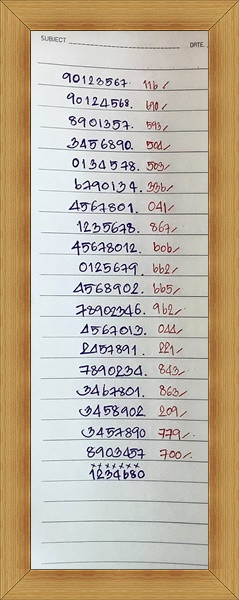 SUBJECT DATE
90123567. 116/
90124568. 690/
8901357. 593/
3456890. 504/
0134578. 503/
6790134. 336/
4567801. 041/
1235678. 867/
45678012. 606/
0125679. 662/
4568902. 665/
78902346. 962/
4567013. 044/
2457891. 221/
7890234. 843/
3467801. 863/
3458902 209/
3457890 779/
8903457 700/
xxxxxxx
1234680